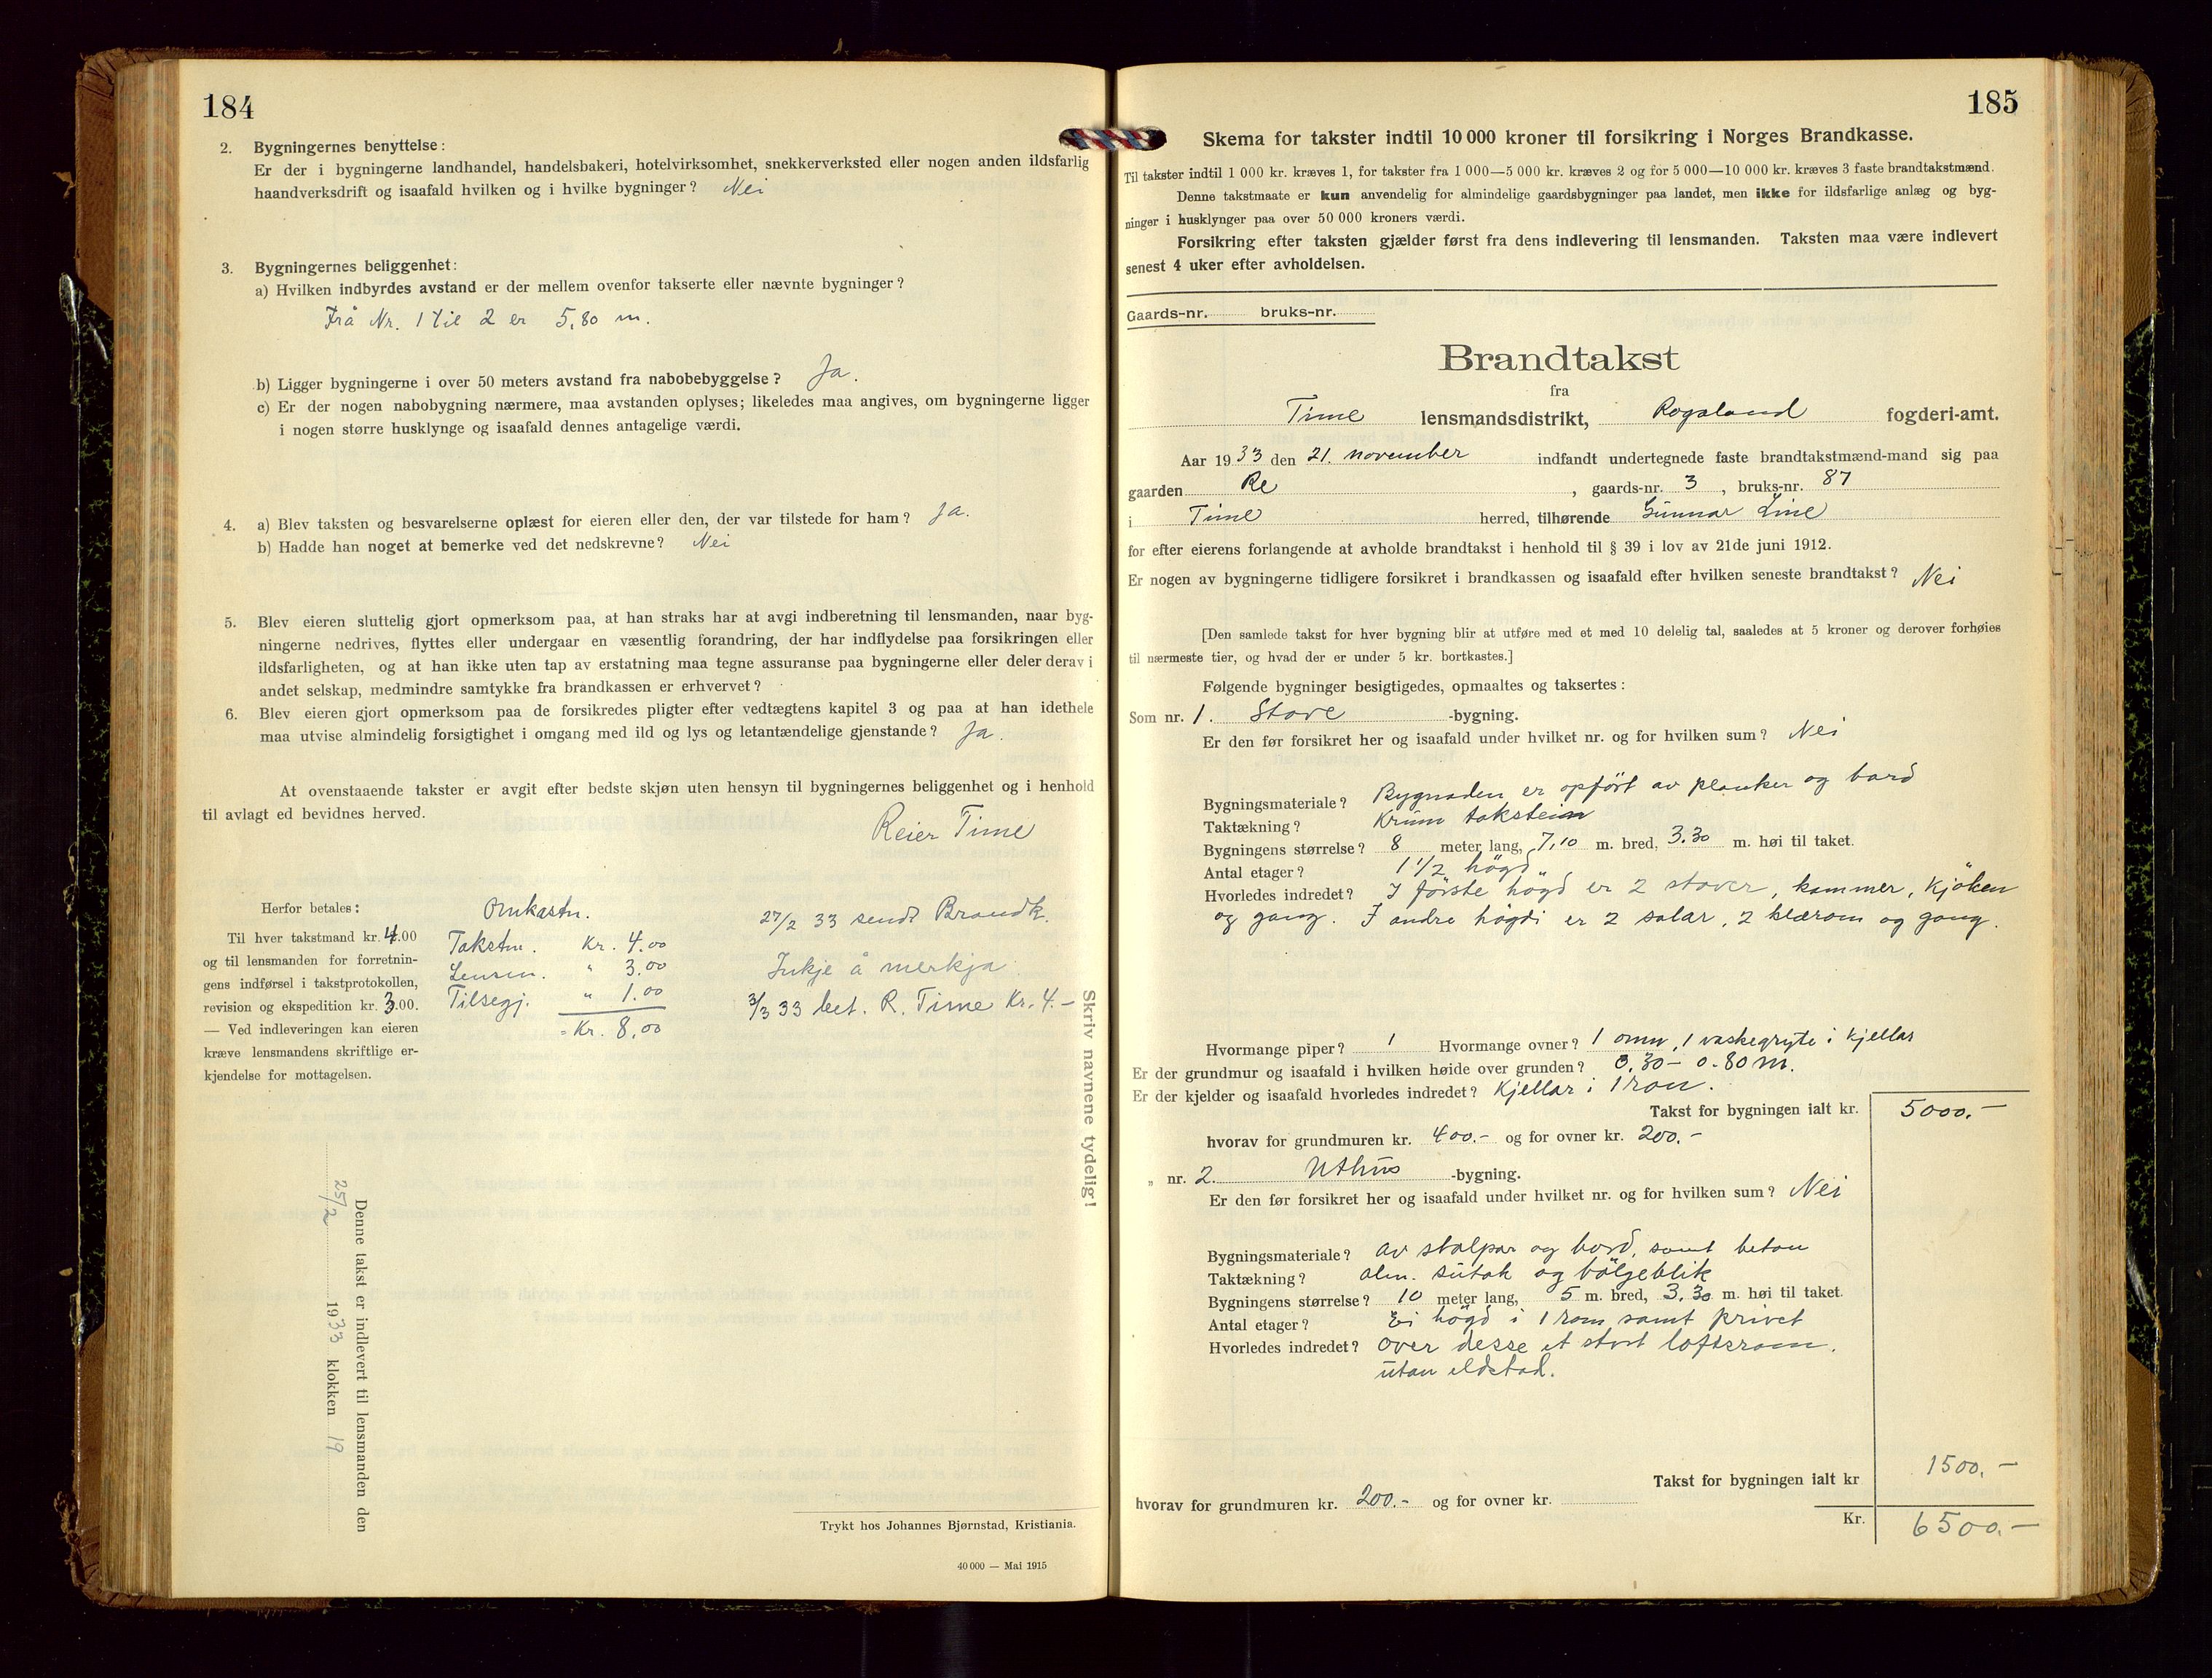 184
2. Bygningernes benyttelse:
Er der i bygningerne landhandel, handelsbakeri, hotelvirksomhet, snekkerverksted eller nogen anden ildsfarlig
haandverksdrift og isaafald hvilken og i hvilke bygninger? Nei
3. Bygningernes beliggenhet:
a) Hvilken indbyrdes avstand er der mellem ovenfor takserte eller nævnte bygninger?
Frå Nr. 1 til 2 er 5,80 m.
b) Ligger bygningerne i over 50 meters avstand fra nabobebyggelse? Ja.
c) Er der nogen nabobygning nærmere, maa avstanden oplyses; likeledes maa angives, om bygningerne ligger
i nogen større husklynge og isaafald dennes antagelige værdi.
4. a) Blev taksten og besvarelserne oplæst for eieren eller den, der var tilstede for ham? Ja.
b) Hadde han noget at bemerke ved det nedskrevne? Nei
5. Blev eieren sluttelig gjort opmerksom paa, at han straks har at avgi indberetning til lensmanden, naar byg-
ningerne nedrives, flyttes eller undergaar en væsentlig forandring, der har indflydelse paa forsikringen eller
ildsfarligheten, og at han ikke uten tap av erstatning maa tegne assuranse paa bygningerne eller deler derav i
andet selskap, medmindre samtykke fra brandkassen er erhvervet?
6. Blev eieren gjort opmerksom paa de forsikredes pligter efter vedtægtens kapitel 3 og paa at han idethele
maa utvise almindelig forsigtighet i omgang med ild og lys og letantændelige gjenstande? Ja.
At ovenstaaende takster er avgit efter bedste skjøn uten hensyn til bygningernes beliggenhet og i henhold
til avlagt ed bevidnes herved.
Reier Time
Herfor betales:
Til hver takstmand kr. 4.00
og til lensmanden for forretnin-
gens indførsel i takstprotokollen,
revision og ekspedition kr. 3.00.
— Ved indleveringen kan eieren
kræve lensmandens skriftlige er-
kjendelse for mottagelsen.
Omkostn.
Takstm. Kr. 4.00
Lensm. " 3.00
Tilsegj. " 1.00
= Kr. 8,00
27/2 33 sendt Brandk.
Inkje å merkja
3/3 33 bet. R. Time Kr. 4.-
Skriv navnene tydelig!
Denne takst er indlevert til lensmanden den
25/2 1933 klokken 19
Trykt hos Johannes Bjørnstad, Kristiania.
40 000 — Mai 1915
185
Skema for takster indtil 10 000 kroner til forsikring i Norges Brandkasse.
Til takster indtil 1 000 kr. kræves 1, for takster fra 1 000—5 000 kr. kræves 2 og for 5 000—10 000 kr. kræves 3 faste brandtakstmænd.
Denne takstmaate er kun anvendelig for almindelige gaardsbygninger paa landet, men ikke for ildsfarlige anlæg og byg-
ninger i husklynger paa over 50 000 kroners værdi.
Forsikring efter taksten gjælder først fra dens indlevering til lensmanden. Taksten maa være indlevert
senest 4 uker efter avholdelsen.
Gaards-nr. bruks-nr.
Brandtakst
fra
Time lensmandsdistrikt, Rogaland fogderi-amt.
Aar 1933 den 21. november indfandt undertegnede faste brandtakstmænd-mand sig paa
gaarden Re, gaards-nr. 3, bruks-nr. 87
i Time herred, tilhørende Gunnar Line
for efter eierens forlangende at avholde brandtakst i henhold til § 39 i lov av 21de juni 1912.
Er nogen av bygningerne tidligere forsikret i brandkassen og isaafald efter hvilken seneste brandtakst? Nei
[Den samlede takst for hver bygning blir at utføre med et med 10 delelig tal, saaledes at 5 kroner og derover forhøies
til nærmeste tier, og hvad der er under 5 kr. bortkastes.]
Følgende bygninger besigtigedes, opmaaltes og taksertes:
Som nr. 1. Stove -bygning.
Er den før forsikret her og isaafald under hvilket nr. og for hvilken sum? Nei
Bygningsmateriale? Bygnaden er opfört av planker og bord
Taktækning? Krum takstein
Bygningens størrelse? 8 meter lang, 7,10 m. bred, 3.30 m. høi til taket.
Antal etager? 1 1/2 högd
Hvorledes indredet? I förste högd er 2 stover, kammer, kjöken
og gang. I andre högdi er 2 salar, 2 klærom og gang.
Hvormange piper? 1 Hvormange ovner? 1 omn, 1 vaskegryte i kjellar
Er der grundmur og isaafald i hvilken høide over grunden? 0.30 - 0.80 m.
Er der kjelder og isaafald hvorledes indredet? Kjellar i 1 rom.
Takst for bygningen ialt kr. 5000.-
hvorav for grundmuren kr. 400.- og for ovner kr. 200.-
„ nr. 2. Uthus -bygning.
Er den før forsikret her og isaafald under hvilket nr. og for hvilken sum? Nei
Bygningsmateriale? av stolpar og bord, samt beton
Taktækning? alm. sutak og bölgeblik
Bygningens størrelse? 10 meter lang, 5 m. bred, 3.30 m. høi til taket.
Antal etager? Ei högd i 1 rom samt privet
Hvorledes indredet? over desse et stort loftsrom.
utan eldstad.
Takst for bygningen ialt kr 1500.-
hvorav for grundmuren kr. 200.- og for ovner kr.
Kr. 6500.-